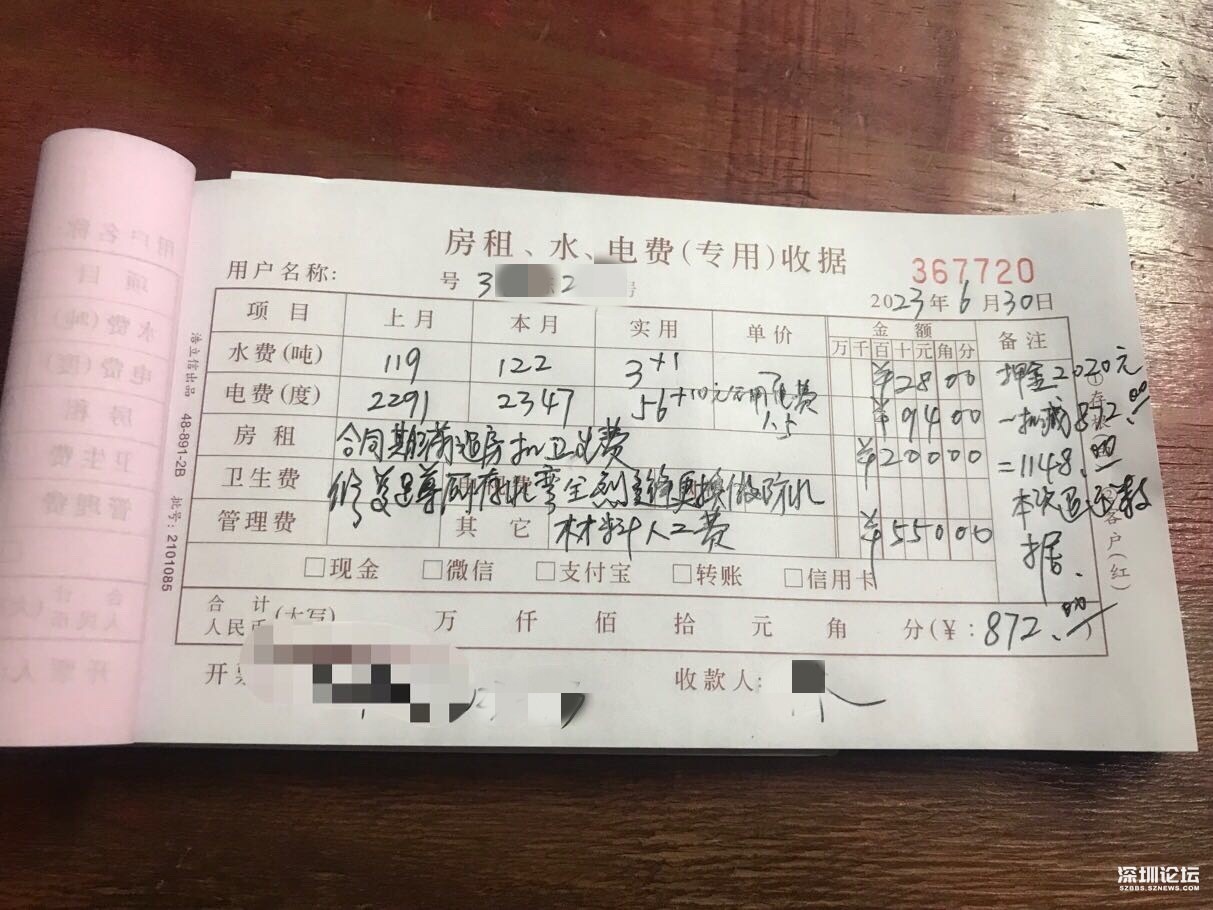 房租、水、电费(专用)收据
367720
用户名称: 号 3 2 号
2023年6月30日
项目 上月 本月 实用 单价 金额 备注
万千百十元角分
水费(吨) 119 122 3+1 7 ¥2800 押金2020元
电费(度) 2291 2347 56+10元公用电费 1.5 ¥9400 -扣减872.00
房租 合同期前退房扣卫生费 ¥20000 =1148.00
卫生费 修 更换做防水 本次退还 据.
管理费 其它 材料人工费 ¥55000
□现金 □微信 □支付宝 □转账 □信用卡
合计人民币(大写) 万 仟 佰 拾 元 角 分(¥:872.00)
开票 收款人:
浩立信出品 48-891-2B 批号:2101085
①存根 客户(红)
用户名称
项目
水费(吨)
电费(度)
房租
卫生费
管理费
合计
人民币
开票人
深圳论坛
SZBBS.SZNEWS.COM